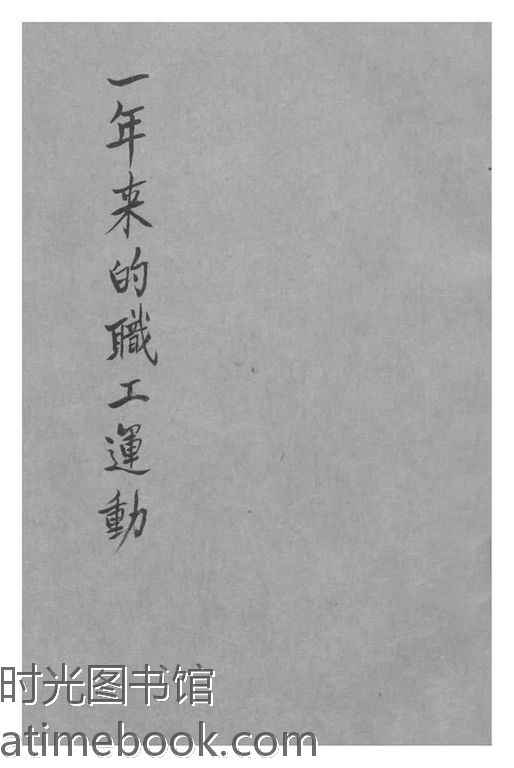 一年来的職工運動
时光图书馆
atimebook.com